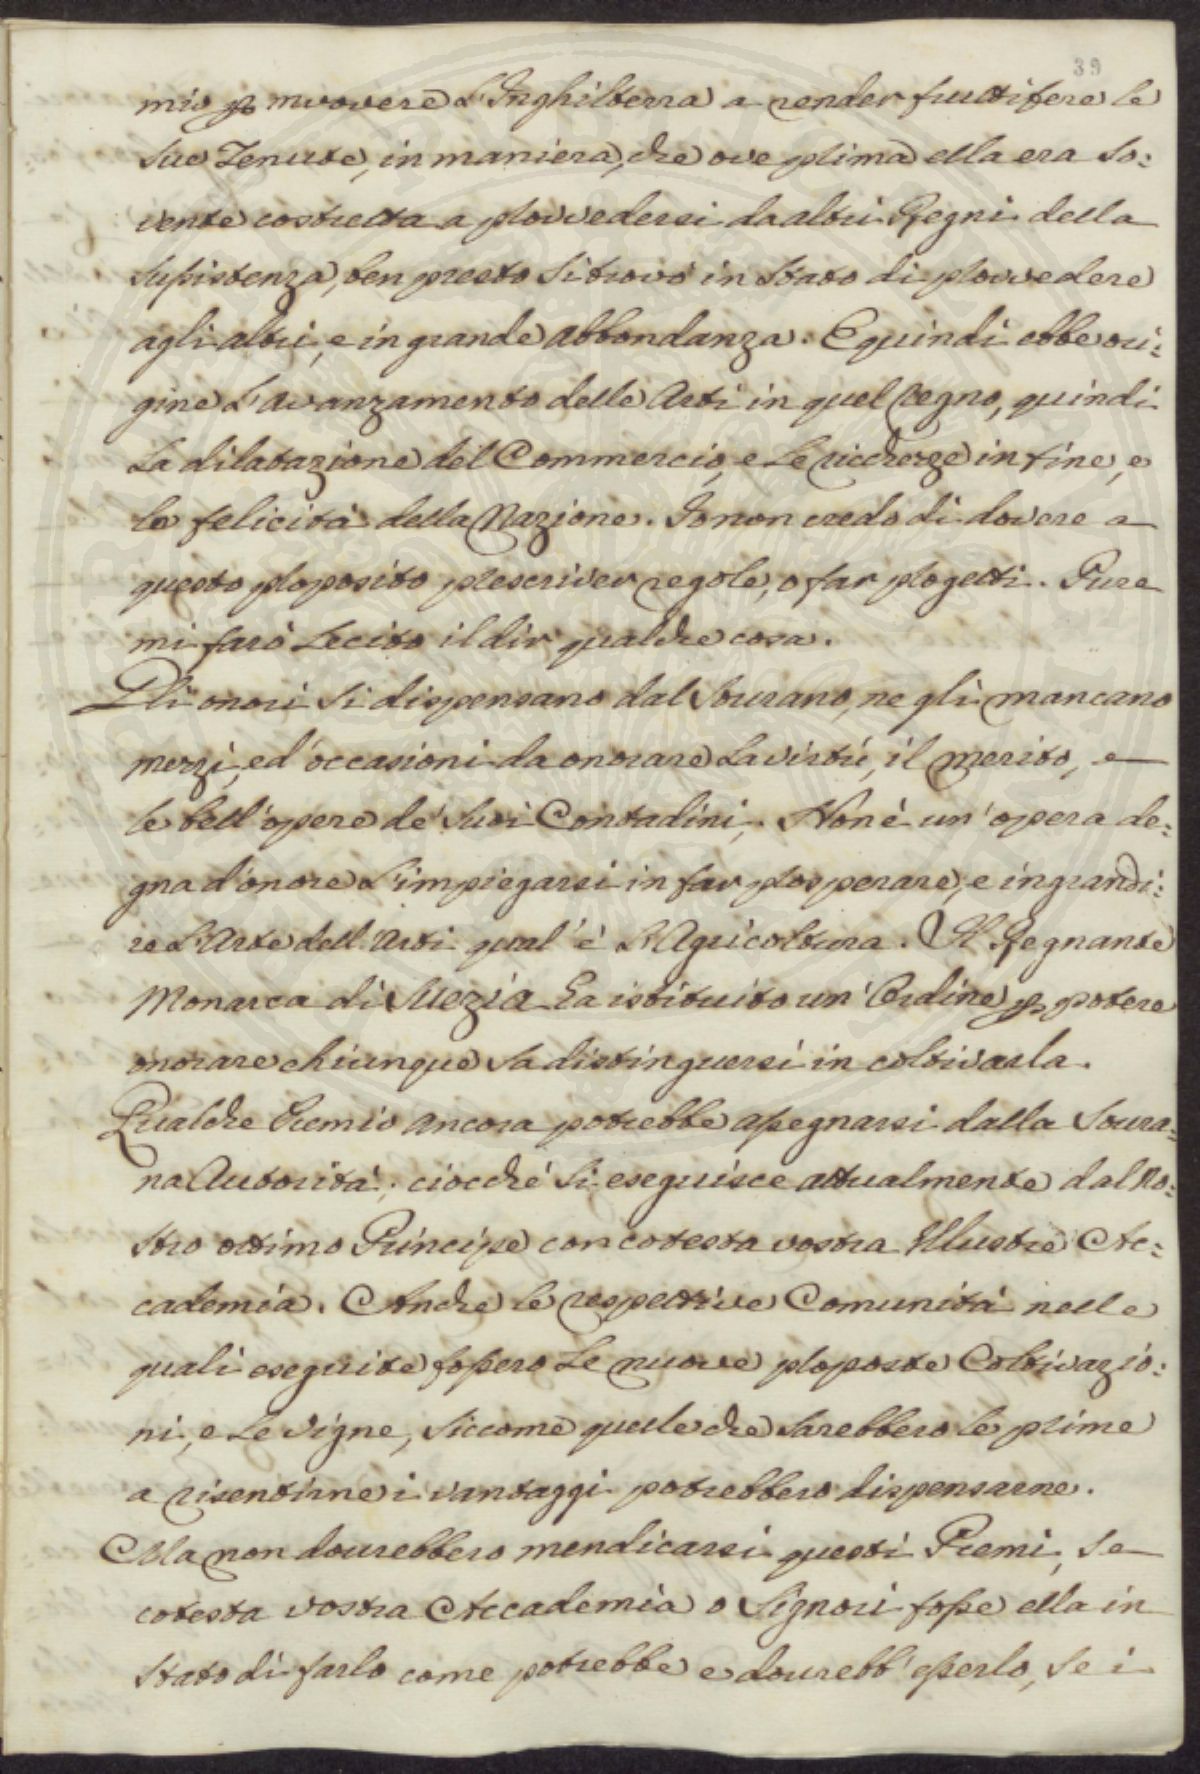 39
mio p muovere L'Inghilterra a render fruttifere le
sue Tenute, in maniera, che ove prima ella era so:
vente costretta a provvedersi da altri Regni della
sussistenza, ben presto si trovò in stato di provvedere
agli altri, e in grande abbondanza. E quindi ebbe ori:
gine L'avanzamento delle Arti in quel Regno, quindi
La dilatazione del Commercio, e Le ricchezze in fine, e
la felicità della Nazione. Io non credo di dovere a
questo proposito prescriver regole, o far progetti. Pure
mi farò Lecito il dir qualche cosa.
Gli onori si dispensano dal Sovrano, ne gli mancano
mezzi, ed occasioni da onorare La virtú, il merito, e
le bell'opere de' suoi Contadini. Non è un'opera de:
gna d'onore L'impiegarsi in far prosperare, e ingrandi:
re L'Arte dell'Arti qual'è L'Agricoltura. Il Regnante
Monarca di Suezia ha istituito un'Ordine p potere
onorare chiunque sa distinguersi in coltivarla.
Qualche Premio ancora potrebbe assegnarsi dalla Sovra:
na Autorità, ciocché si eseguisce attualmente dal No:
stro ottimo Principe con cotesta vostra Illustre Ac:
cademia. Anche le respettive Comunità nelle
quali eseguite fossero Le nuove proposte Coltivazio:
ni, e Le Vigne, siccome quelle che sarebbero le prime
a risentirne i vantaggi potrebbero dispensarne.
Ma non dourebbero mendicarsi questi Premi, se
cotesta vostra Accademia o Signori fosse ella in
stato di farlo come potrebbe e dourebb'esserlo, se i